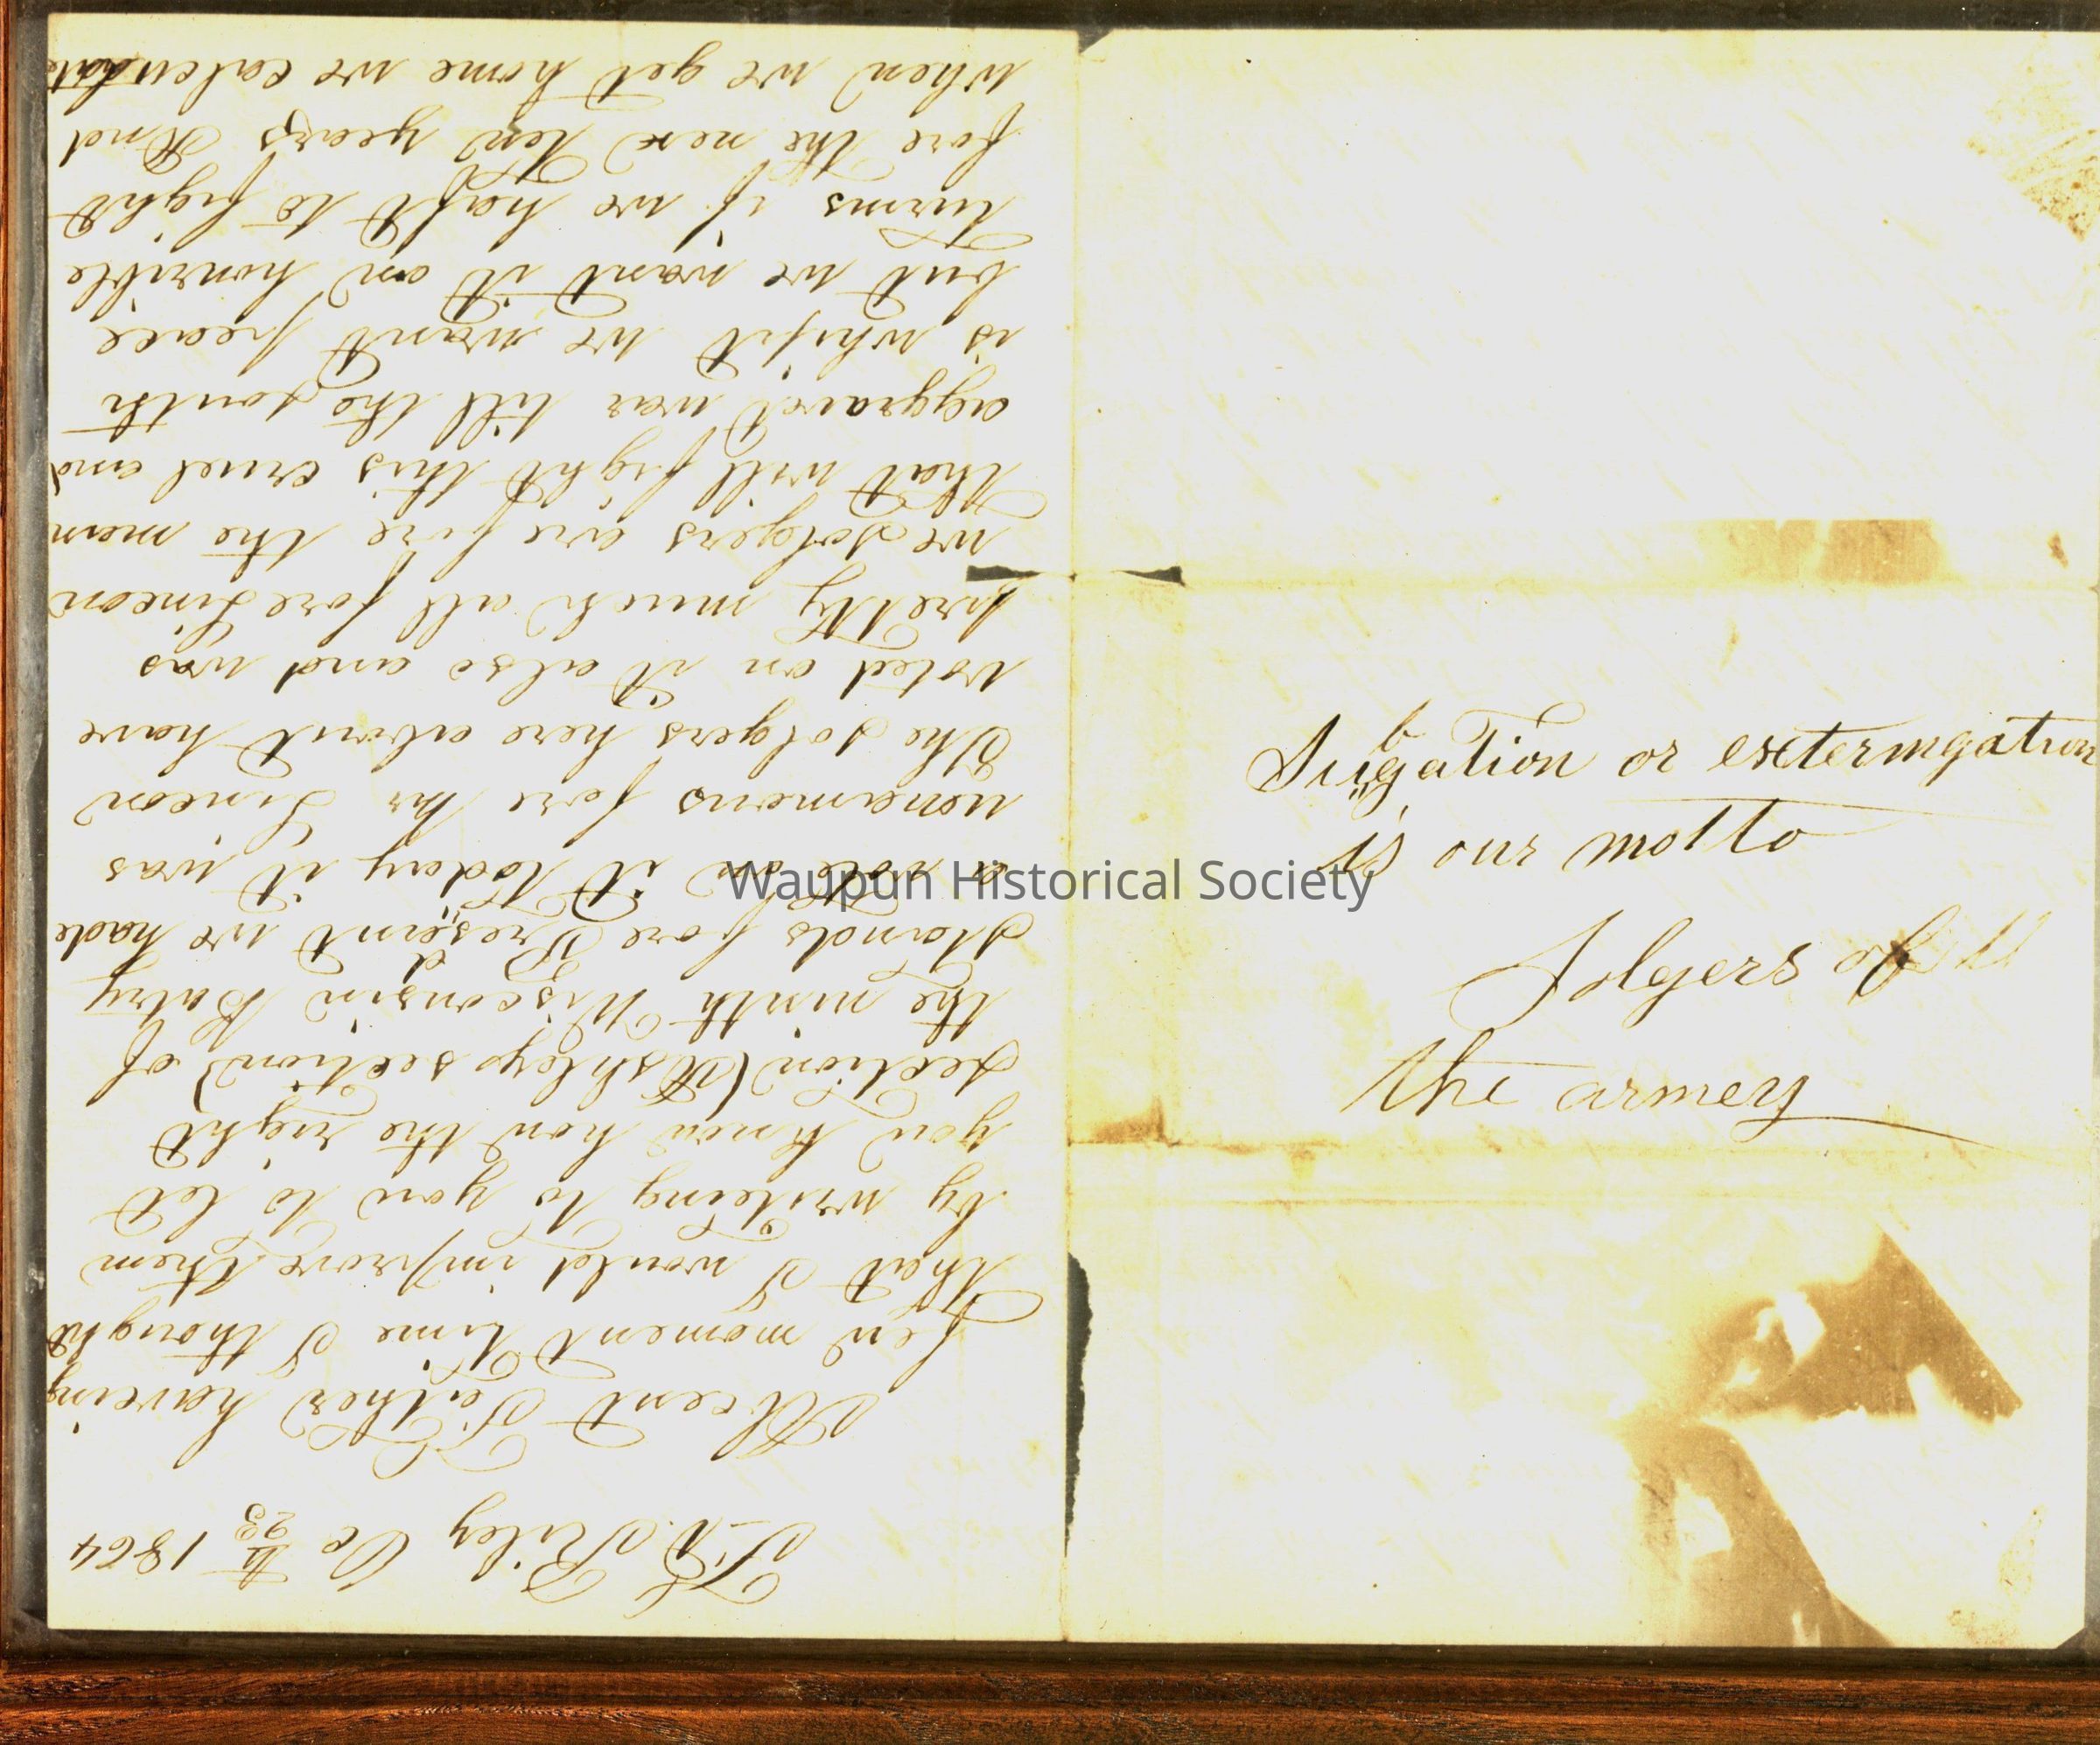 Ft. Riley Oc th/23 1864
Abcent Father haveing
few moment time I thought
that I would improve them
by writeing to you to let
you know how the right
section (Ashley section) of
the ninth Wisconsin Batry
stands fore Presdent we hade
a vote on it today it was
unanamous fore Mr Lincon
The solgers here about have
voted on it also and was
pretty much all fore Lincon
we solgers are fore the man
that will fight this cruel and
aggravet war till the south
is whipt we want peace
but we want it on honrible
turms if we haft to fight
fore the nex ten years And
when we get home we calculate
Subgation or extermgation
is our motto
Solgers of
the armey
Waupun Historical Society